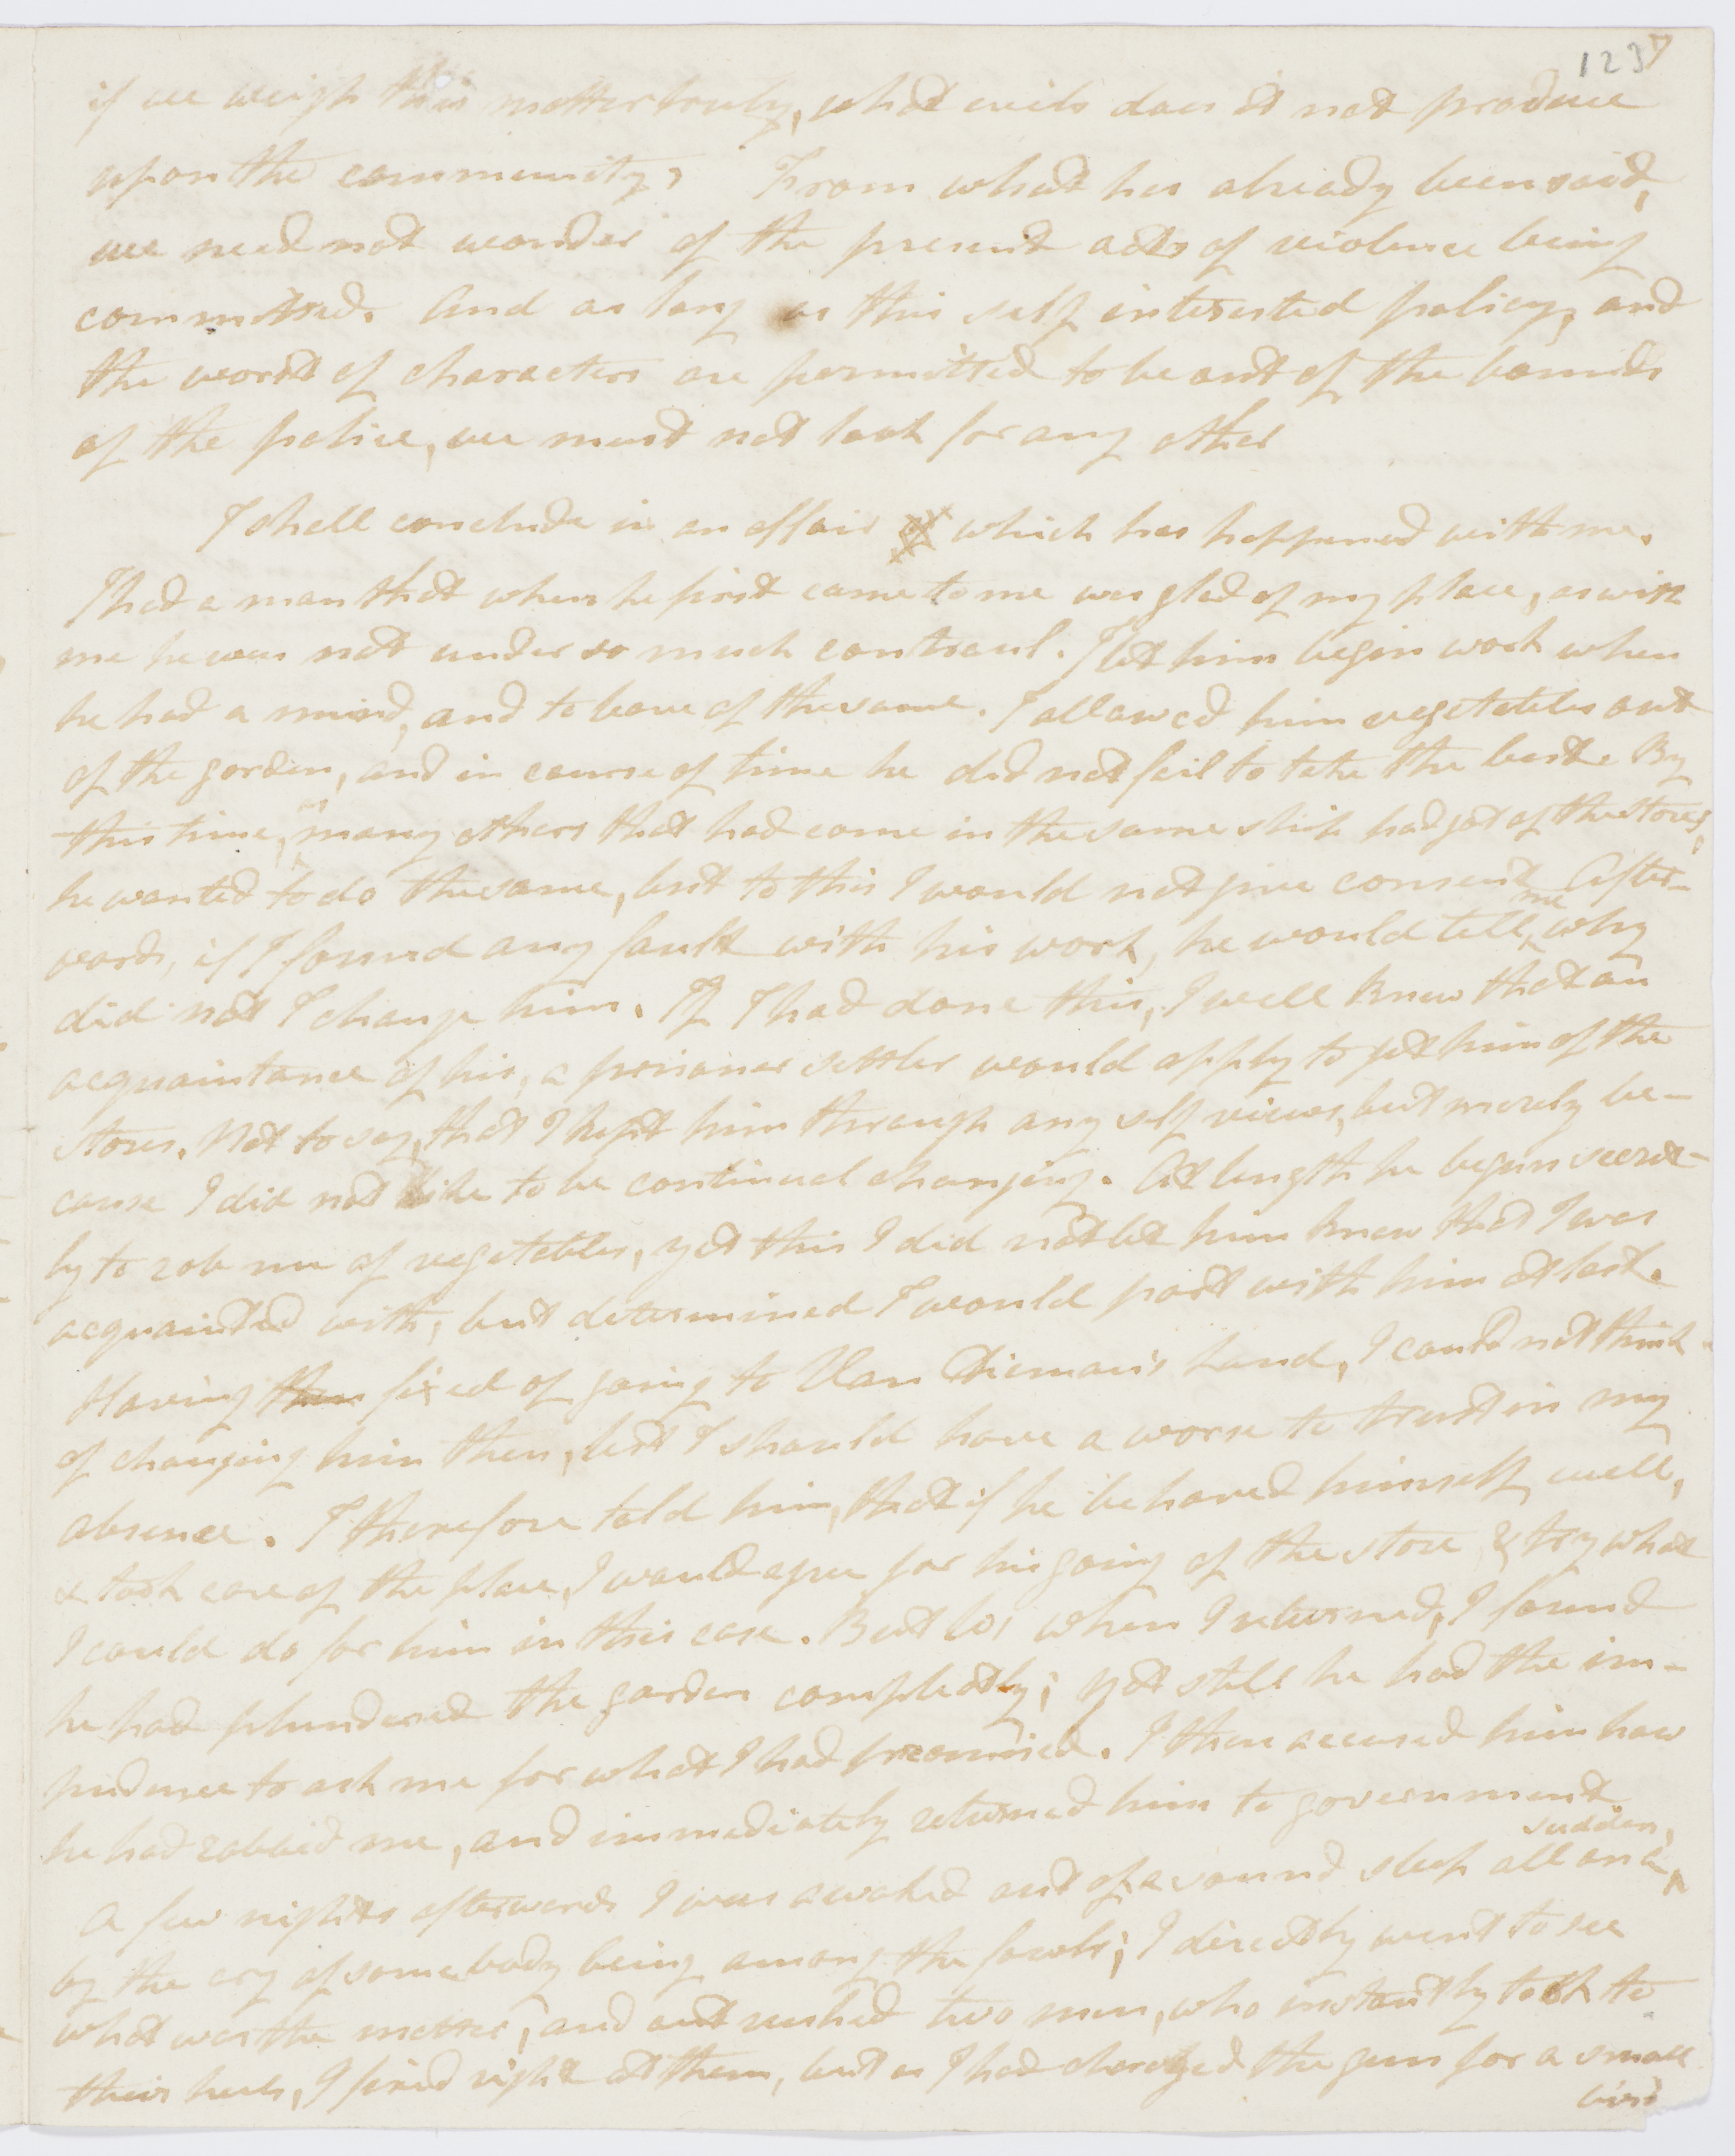 1237
if we weigh this matter truly, what evils does it not produce
upon the community? From what has already been said,
we need not wonder of the present acts of violence being
committed. And as long as this self interested policy, and
the worst of characters are permitted to be out of the bounds
of the police, we must not look for any other
I shall conclude in an affair of which has happened with me.
I had a man that when he first came to me was glad of my place, as with
me he was not under so much controul. I let him begin work when
he had a mind, and to leave of the same. I allowed him vegetables out
of the garden, and in course of time he did not fail to take the best. By
this time, as many others that had come in the same ship had got of the stores,
he wanted to do the same, but to this I would not give consent. After-
wards, if I found any fault with his work, he would tell me why
did not I change him. If I had done this, I well knew that an
acquaintance of his, a prisoner settler would apply to get him of the
stores. Not to say, that I kept him through any self views, but merely be-
cause I did not like to be continual changing. At length he begun secret-
ly to rob me of vegetables, yet this I did not let him know that I was
acquainted with, but determined I would part with him at last.
Having then fixed of going to Van Dieman's Land, I could not think
of changing him then, lest I should have a worse to trust in my
absence. I therefore told him, that if he behaved himself well,
& took care of the place, I would agree for his going of the store & try what
I could do for him in this case. But lo! when I returned, I found
he had plundered the garden compleatly; yet still he had the im-
pudence to ask me for what I had promised. I then accused him how
he had robbed me, and immediately returned him to government
A few nights afterwards I was awaked out of a sound sleep all on a sudden,
by the cry of somebody being among the fowls; I directly went to see
what was the matter, and out rushed two men, who instantly took to
their heels, I fired right at them, but as I had charged the gun for a small
bird